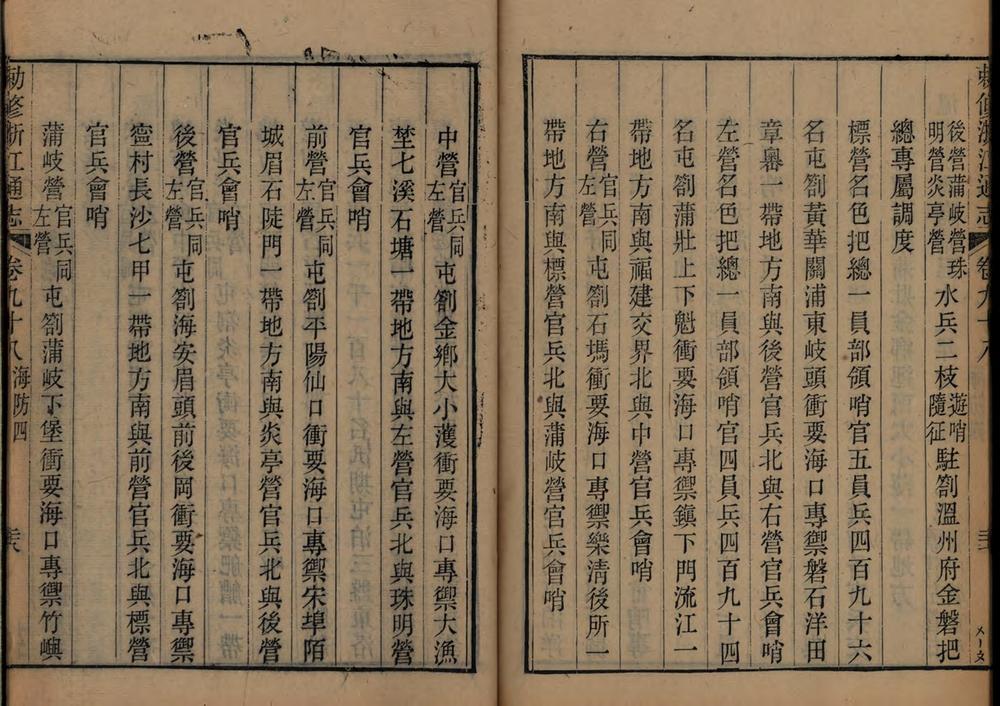 敕修浙江通志 卷九十八
後營蒲岐營珠
明營炎亭營
水兵二枝
遊哨
隨征
駐劄溫州府金磐把
總專屬調度
標營名色把總一員部領哨官五員兵四百九十六
名屯劄黃華關浦東岐頭衝要海口專禦磐石洋田
章嶴一帶地方南與後營官兵北與右營官兵會哨
左營名色把總一員部領哨官四員兵四百九十四
名屯劄蒲壯上下魁衝要海口專禦鎮下門流江一
帶地方南與福建交界北與中營官兵會哨
右營
官兵同
左營
屯劄石塢衝要海口專禦樂淸後所一
帶地方南與標營官兵北與蒲岐營官兵會哨
中營
官兵同
左營
屯劄金鄉大小濩衝要海口專禦大漁
埜七溪石塘一帶地方南與左營官兵北與珠明營
官兵會哨
前營
官兵同
左營
屯劄平陽仙口衝要海口專禦宋埠陌
城眉石陡門一帶地方南與炎亭營官兵北與後營
官兵會哨
後營
官兵同
左營
屯劄海安眉頭前後岡衝要海口專禦
寧村長沙七甲一帶地方南與前營官兵北與標營
官兵會哨
蒲岐營
官兵同
左營
屯劄蒲岐下堡衝要海口專禦竹嶼
敕修浙江通志 卷九十八 海防四